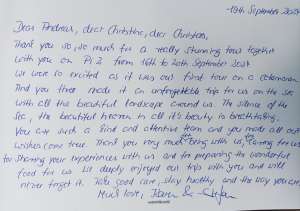 -19th September 2021
Dear Andreas, dear Christine, dear Christian,
Thank you so, so much for a really stunning tour together
with you on Pi 2 from 16th to 20th September 2021
We were so excited as it was our first tour on a catamaran
And you three made it an unforgettable trip for us on the sea
with all the beautiful landscape around us. The silence of the
sea, the beautiful in all it's beauty is breathtaking.
You are such a kind and attentive team and you made all our
wishes come true. Thank you very much being with us, caring for us
for sharing your experiences with us and for preparing the wonderful
food for us. We deeply enjoyed our trip with you and will
never forget it. Take good care, stay healthy and the way you are
Much love, &